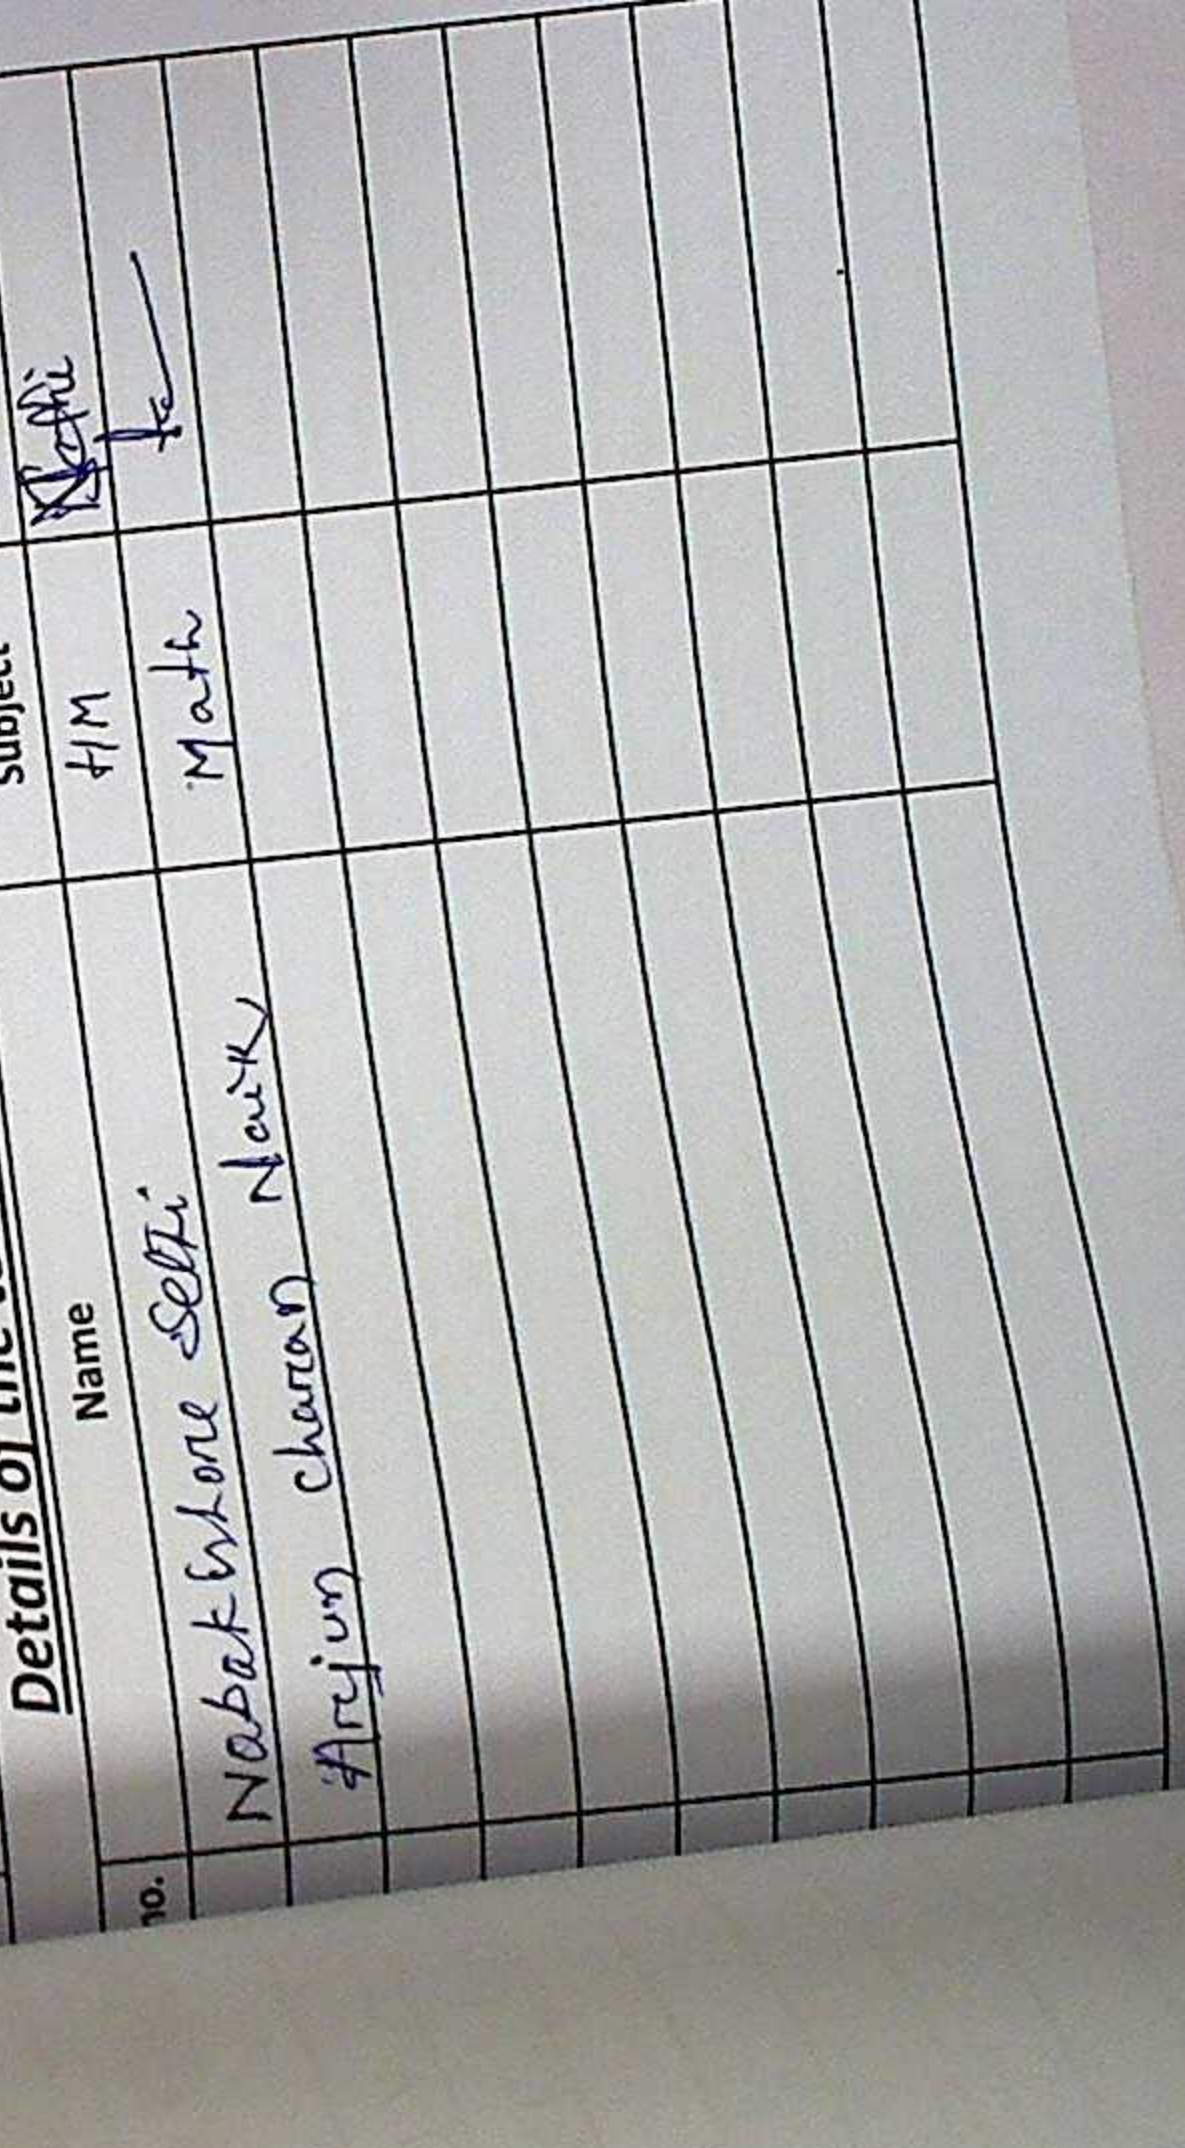 Details of the
no. Name Subject
Nabakishore Sethi HM
Arjun charan Naik Math